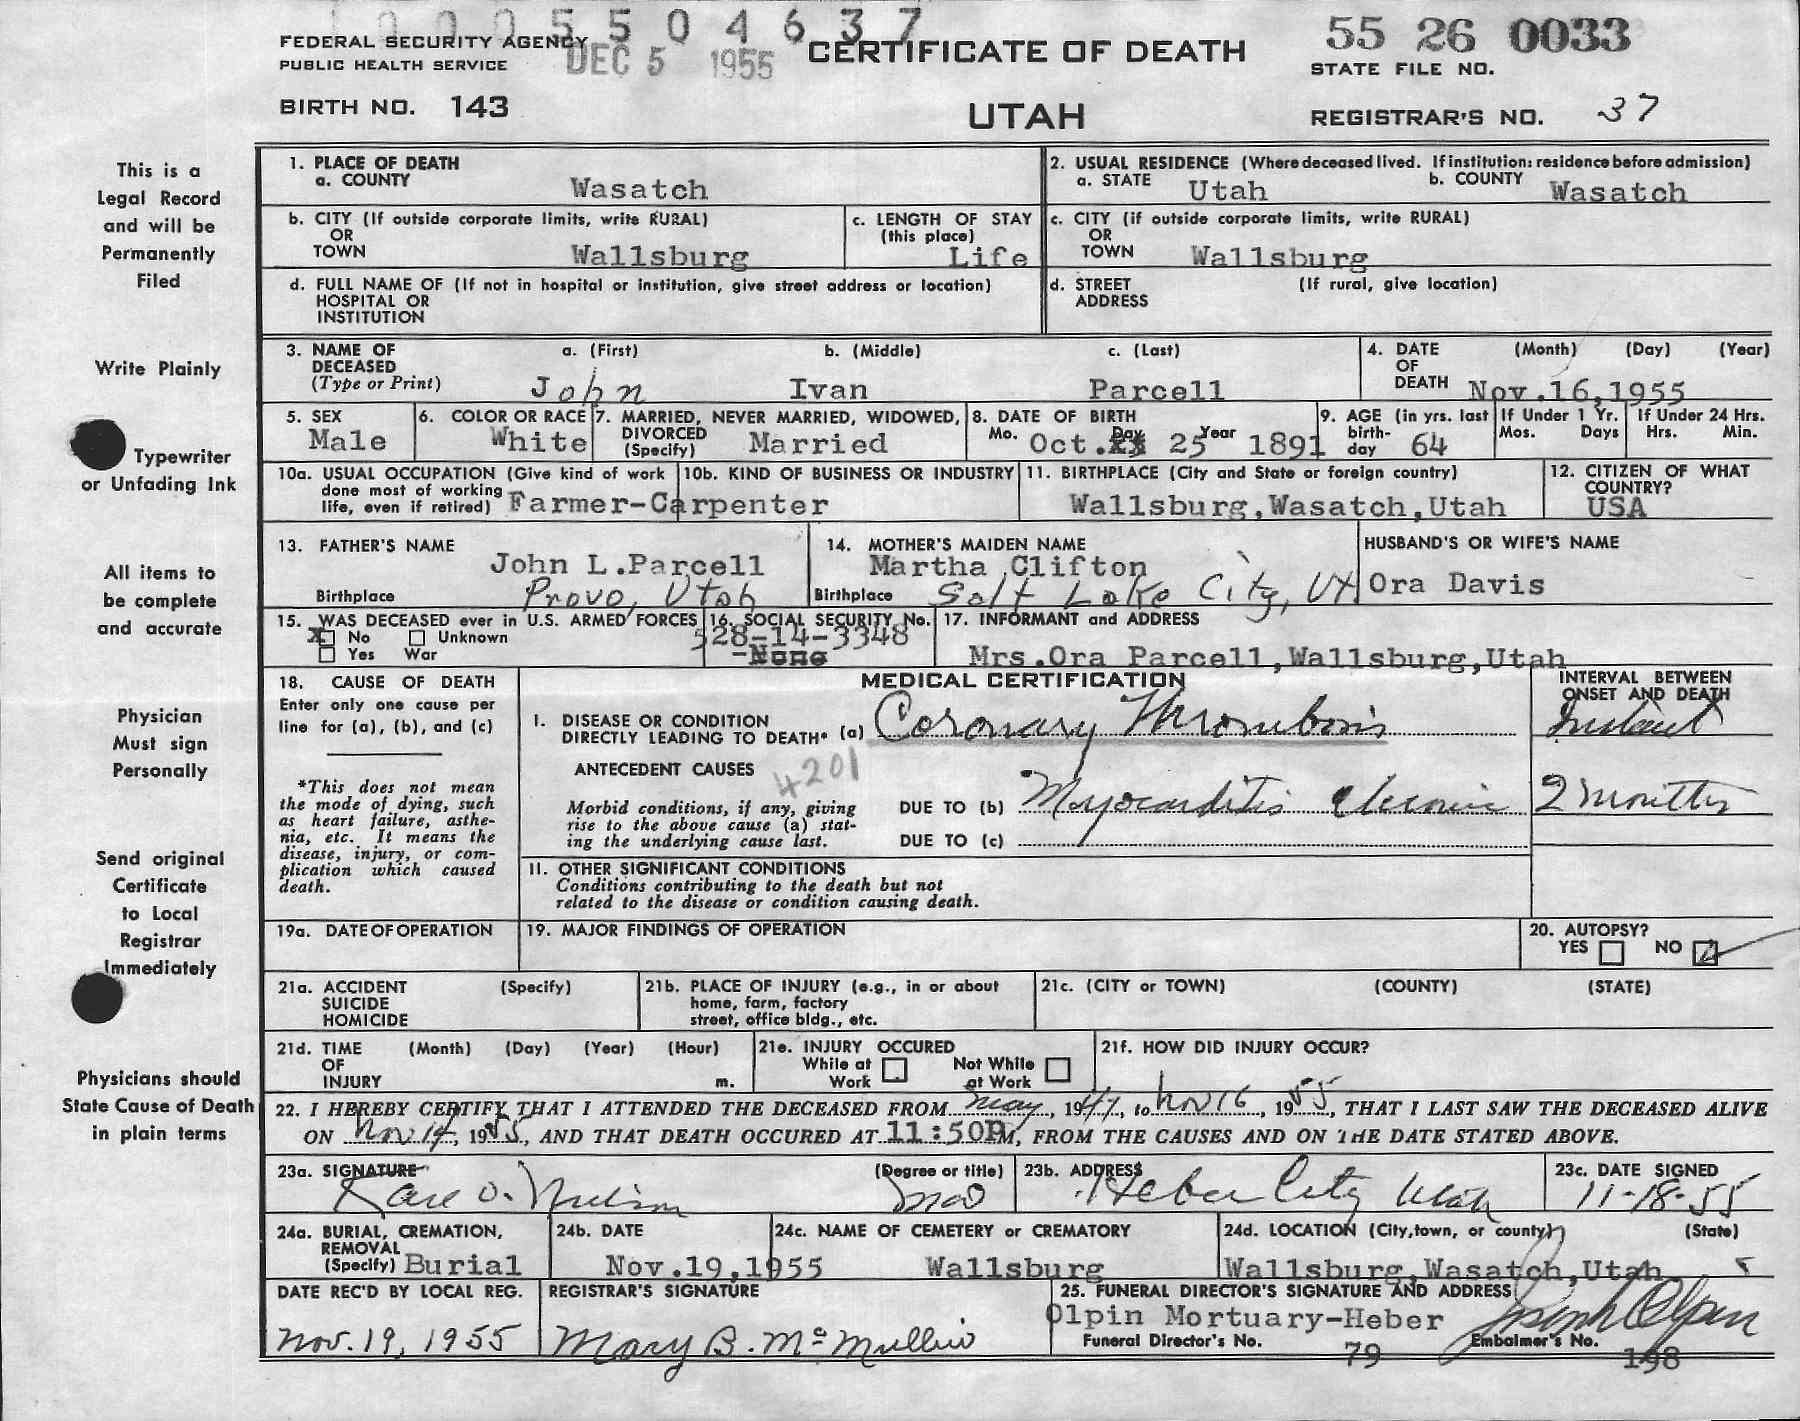 0005504637
FEDERAL SECURITY AGENCY
PUBLIC HEALTH SERVICE
DEC 5 1955
CERTIFICATE OF DEATH
55 26 0033
STATE FILE NO.
BIRTH NO. 143
UTAH
REGISTRAR'S NO. 37
This is a
Legal Record
and will be
Permanently
Filed
Write Plainly
Typewriter
or Unfading Ink
All items to
be complete
and accurate
Physician
Must sign
Personally
Send original
Certificate
to Local
Registrar
Immediately
Physicians should
State Cause of Death
in plain terms
1. PLACE OF DEATH
a. COUNTY Wasatch
2. USUAL RESIDENCE (Where deceased lived. If institution: residence before admission)
a. STATE Utah b. COUNTY Wasatch
b. CITY (If outside corporate limits, write RURAL)
OR
TOWN Wallsburg
c. LENGTH OF STAY
(this place)
Life
c. CITY (if outside corporate limits, write RURAL)
OR
TOWN Wallsburg
d. FULL NAME OF (If not in hospital or institution, give street address or location)
HOSPITAL OR
INSTITUTION
d. STREET (If rural, give location)
ADDRESS
3. NAME OF a. (First) b. (Middle) c. (Last)
DECEASED
(Type or Print) John Ivan Parcell
4. DATE (Month) (Day) (Year)
OF
DEATH Nov.16,1955
5. SEX
Male
6. COLOR OR RACE
White
7. MARRIED, NEVER MARRIED, WIDOWED,
DIVORCED
(Specify) Married
8. DATE OF BIRTH
Mo. Day Year
Oct. 25 1891
9. AGE (in yrs. last
birth-
day 64
If Under 1 Yr.
Mos. Days
If Under 24 Hrs.
Hrs. Min.
10a. USUAL OCCUPATION (Give kind of work
done most of working
life, even if retired) Farmer-Carpenter
10b. KIND OF BUSINESS OR INDUSTRY
11. BIRTHPLACE (City and State or foreign country)
Wallsburg,Wasatch,Utah
12. CITIZEN OF WHAT
COUNTRY?
USA
13. FATHER'S NAME
John L.Parcell
Birthplace Provo, Utah
14. MOTHER'S MAIDEN NAME
Martha Clifton
Birthplace Salt Lake City, Ut
HUSBAND'S OR WIFE'S NAME
Ora Davis
15. WAS DECEASED ever in U.S. ARMED FORCES
X No Unknown
Yes War
16. SOCIAL SECURITY No.
528-14-3348
-None
17. INFORMANT and ADDRESS
Mrs.Ora Parcell,Wallsburg,Utah
18. CAUSE OF DEATH
Enter only one cause per
line for (a), (b), and (c)
*This does not mean
the mode of dying, such
as heart failure, asthe-
nia, etc. It means the
disease, injury, or com-
plication which caused
death.
MEDICAL CERTIFICATION
INTERVAL BETWEEN
ONSET AND DEATH
I. DISEASE OR CONDITION
DIRECTLY LEADING TO DEATH* (a) Coronary Thrombosis Instant
ANTECEDENT CAUSES
4201
Morbid conditions, if any, giving
rise to the above cause (a) stat-
ing the underlying cause last.
DUE TO (b) Myocarditis chronic 2 months
DUE TO (c)
II. OTHER SIGNIFICANT CONDITIONS
Conditions contributing to the death but not
related to the disease or condition causing death.
19a. DATE OF OPERATION
19. MAJOR FINDINGS OF OPERATION
20. AUTOPSY?
YES NO
21a. ACCIDENT (Specify)
SUICIDE
HOMICIDE
21b. PLACE OF INJURY (e.g., in or about
home, farm, factory
street, office bldg., etc.
21c. (CITY or TOWN) (COUNTY) (STATE)
21d. TIME (Month) (Day) (Year) (Hour)
OF
INJURY m.
21e. INJURY OCCURED
While at Work
Not While at Work
21f. HOW DID INJURY OCCUR?
22. I HEREBY CERTIFY THAT I ATTENDED THE DECEASED FROM May, 1947, to Nov 16, 1955, THAT I LAST SAW THE DECEASED ALIVE
ON Nov 14, 1955, AND THAT DEATH OCCURED AT 11:50P M, FROM THE CAUSES AND ON THE DATE STATED ABOVE.
23a. SIGNATURE (Degree or title)
Karl O. Nielson MD
23b. ADDRESS
Heber City Utah
23c. DATE SIGNED
11-18-55
24a. BURIAL, CREMATION,
REMOVAL
(Specify) Burial
24b. DATE
Nov.19,1955
24c. NAME OF CEMETERY or CREMATORY
Wallsburg
24d. LOCATION (City,town, or county) (State)
Wallsburg,Wasatch,Utah
DATE REC'D BY LOCAL REG.
Nov. 19, 1955
REGISTRAR'S SIGNATURE
Mary B. McMullin
25. FUNERAL DIRECTOR'S SIGNATURE AND ADDRESS
Olpin Mortuary-Heber Joseph Olpin
Funeral Director's No. 79
Embalmer's No. 198